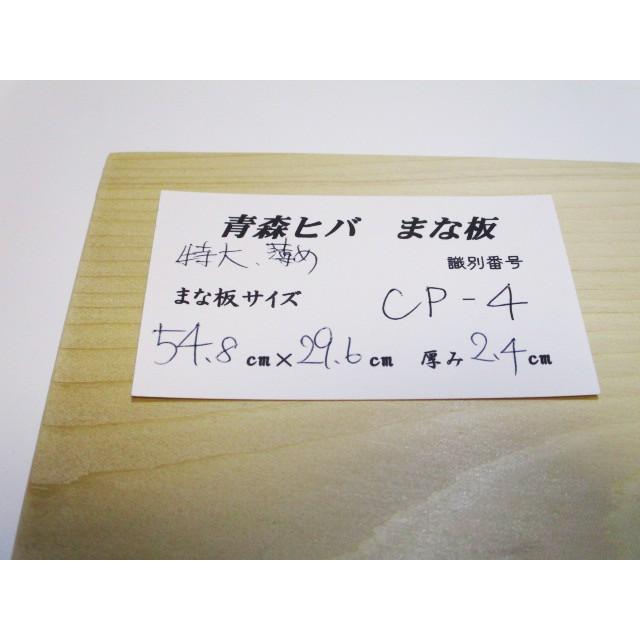 青森ヒバ まな板
特大、薄め 識別番号
まな板サイズ CP-4
54.8cm×29.6cm 厚み2.4cm